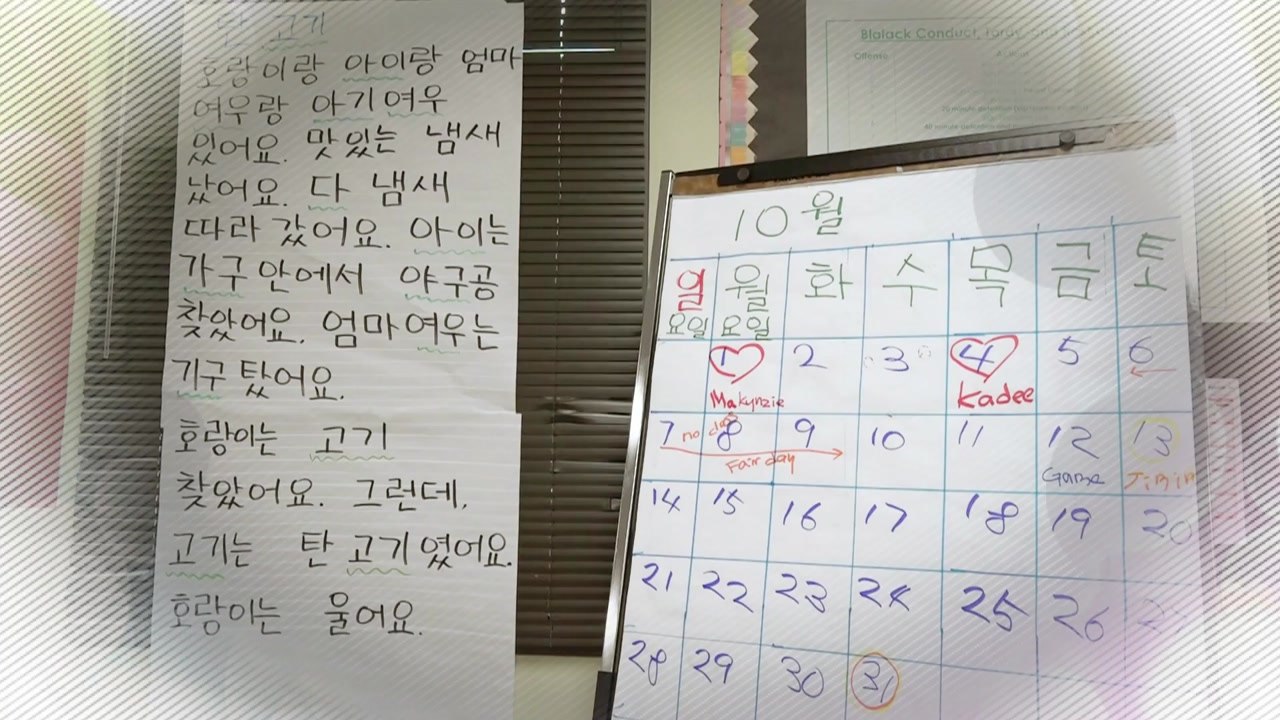 탄 고기
호랑이랑 아이랑 엄마
여우랑 아기여우
있어요. 맛있는 냄새
났어요. 다 냄새
따라 갔어요. 아이는
가구 안에서 야구공
찾았어요. 엄마여우는
기구 탔어요.
호랑이는 고기
찾았어요. 그런데,
고기는 탄 고기였어요.
호랑이는 울어요.
Blalack Conduct, Tardy, and
Offense Action
10월
일요일 월요일 화 수 목 금 토
1 2 3 4 5 6
Makynzie Kadee
7 8 9 10 11 12 13
no class
Fair day Game Jimin
14 15 16 17 18 19 20
21 22 23 24 25 26 27
28 29 30 31